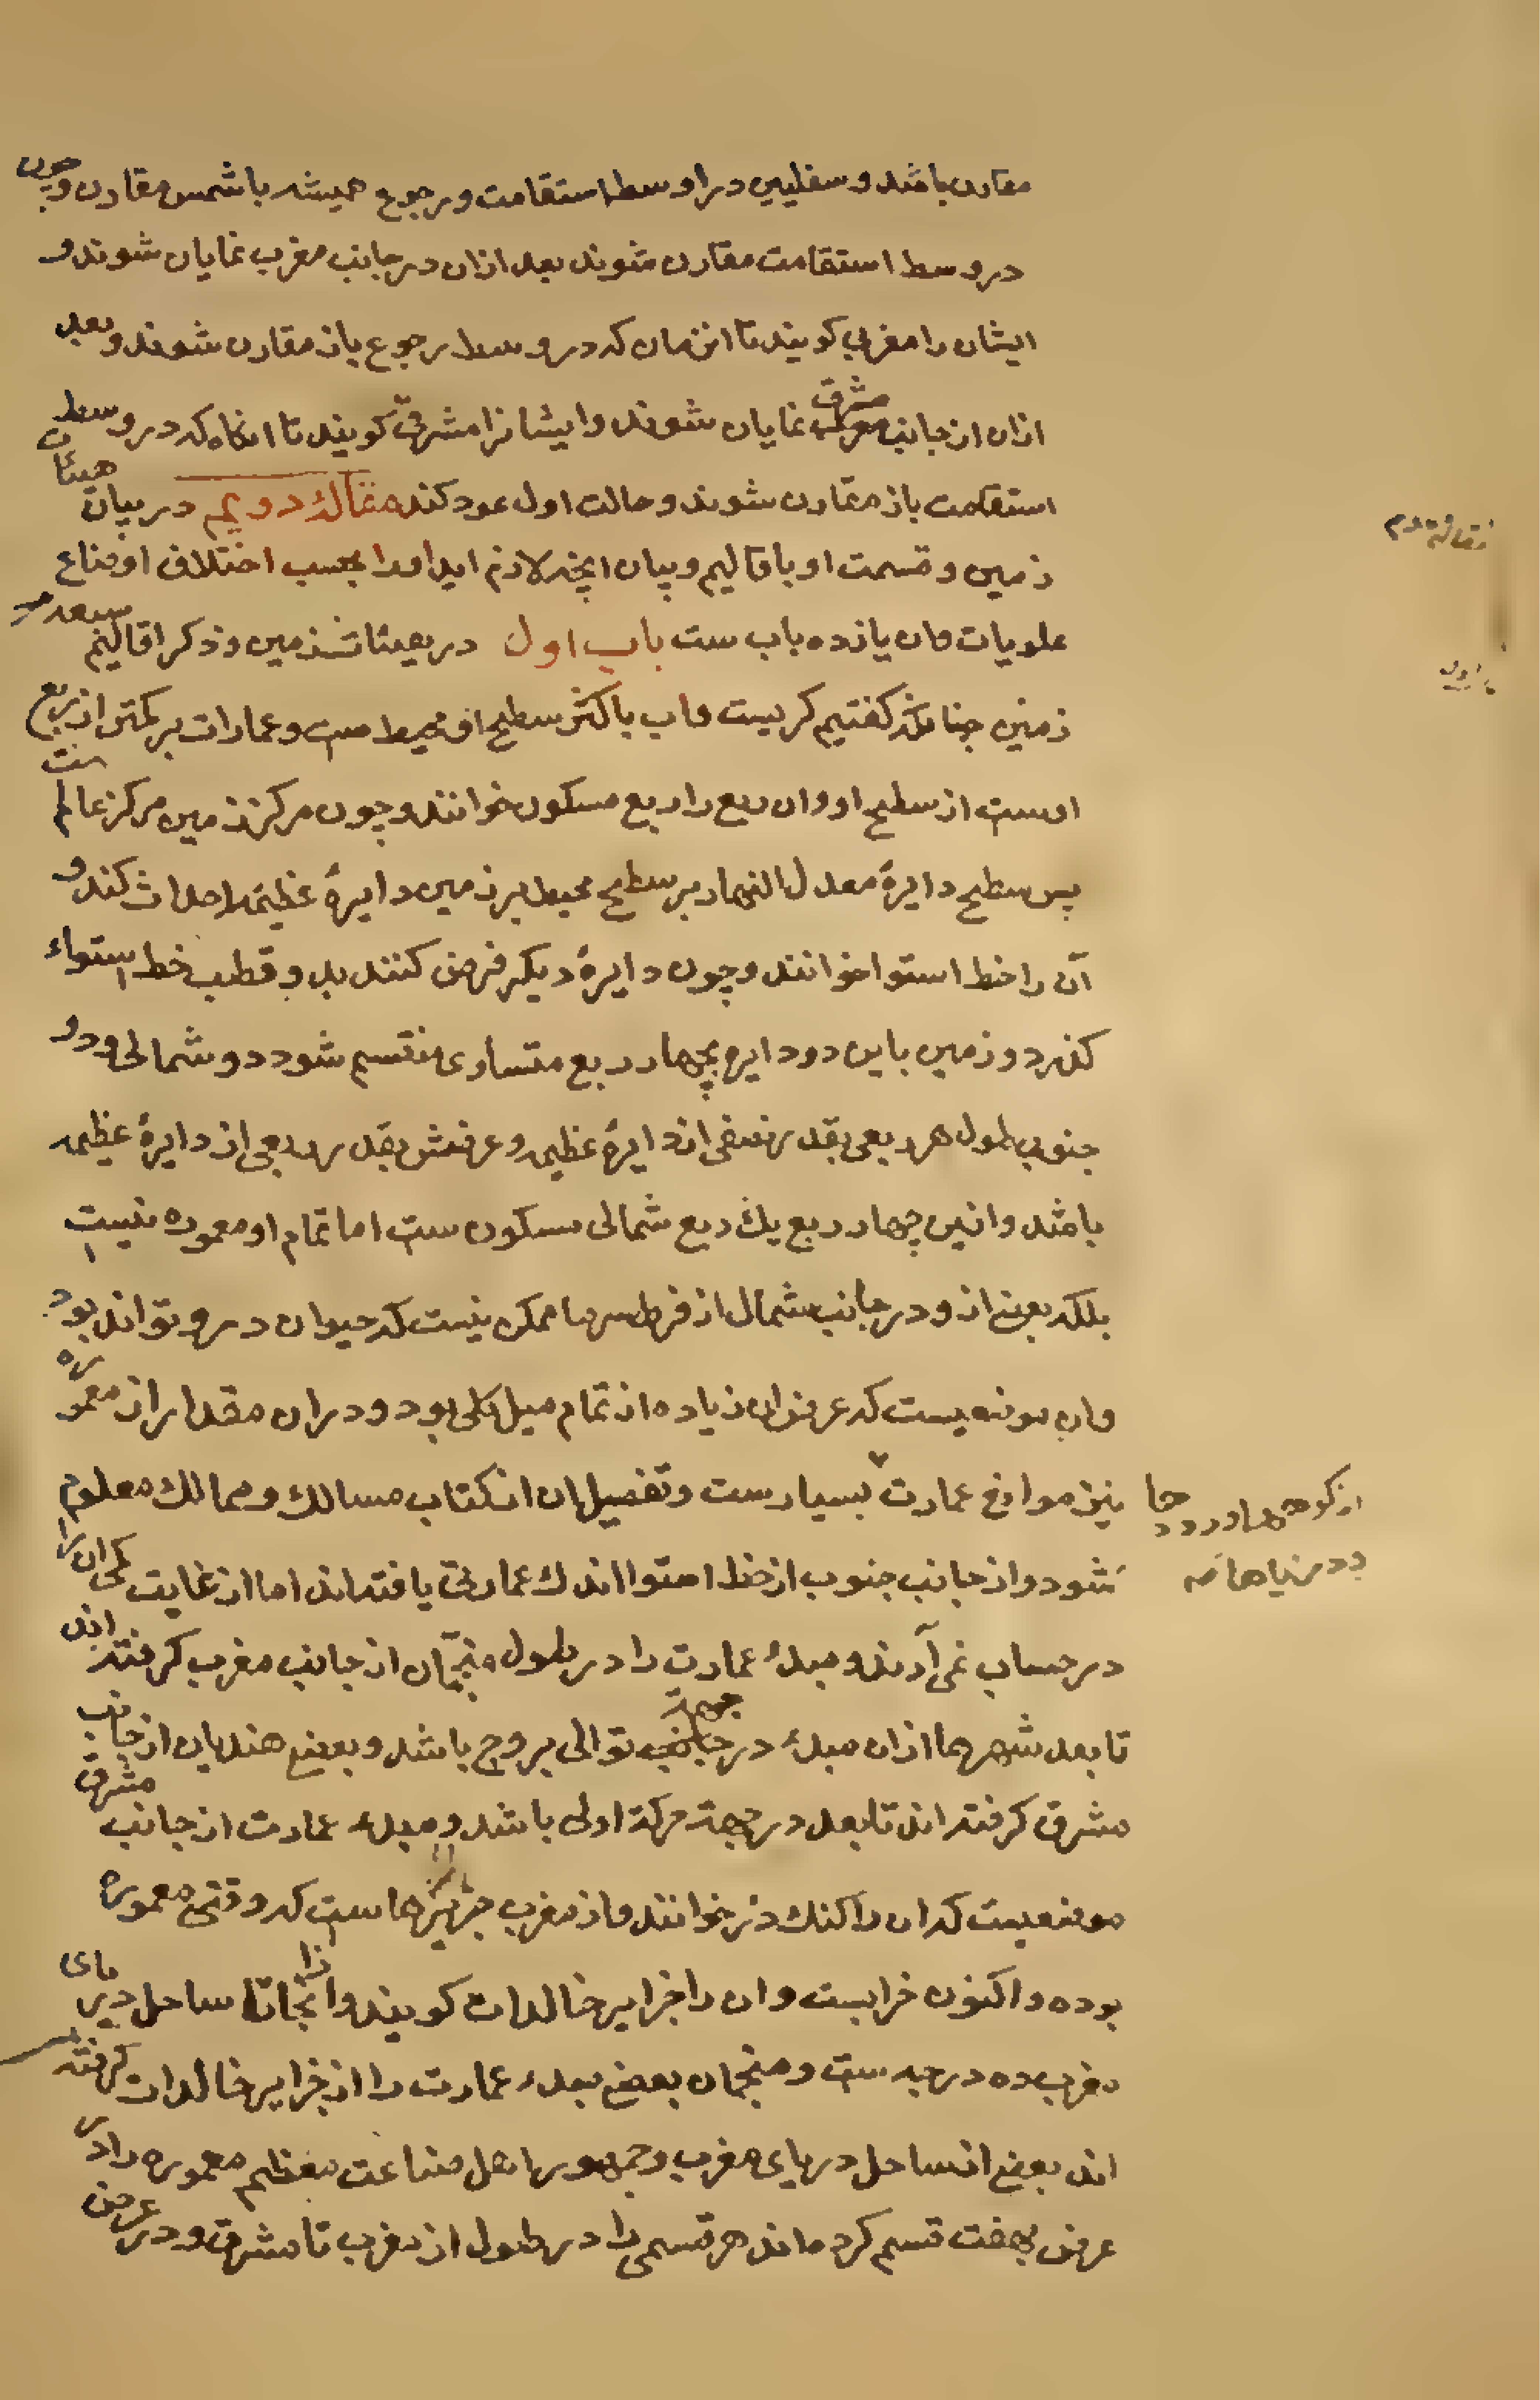 مقارن باشد و سفلیین در اوسط استقامت و رجوع همیشه با شمس مقارن و چون
در وسط استقامت مقارن شوند بعد ازان در جانب مغرب نمایان شوند و
ایشان را مغربی کویند تا انزمان که در وسط رجوع باز مقارن شوند و بعد
ازان از جانب مشرق نمایان شوند وایشانرا مشرقی کویند تا انکاه که در وسط
استقامت باز مقارن شوند و حالت اول عود کند مقالۀ دویم در بیان هیئات
زمین و قسمت او باقالیم و بیان انچه لازم اید او را بحسب اختلاف اوضاع
علویات وان یازده باب ست باب اول در هیئات زمین و ذکر اقالیم سبعه
زمین چنانکه کفتیم کریست واب باکثر سطیح او محیط ست و عمارات بر کمتر از ربع
اوست از سطیح او وان ربع را ربع مسکون خوانند و چون مرکز زمین مرکز عالم
پس سطیح دایرۀ معدل النهار بر سطیح محیط بر زمین دایرۀ عظیمه احداث کند و
آن را خط استوا خوانند و چون دایرۀ دیکر فرض کنند بدو قطب خط استواء
کذرد و زمین باین دو دایره بچهار ربع متساوی منقسم شود دو شمالی و دو
جنوبی طول هر ربعی بقدر نصفی از دایرۀ عظیمه و عرضش بقدر ربعی از دایرۀ عظیمه
باشد وازین چهار ربع یك ربع شمالی مسکون ست اما تمام او معموره نیست
بلکه بعضی ازو در جانب شمال از فرط سرما ممکن نیست که حیوان درو تواند بود
وان موضعیست که عرض ان زیاده از تمام میل کلی بود و دران مقدار از معموره
نیز مواضع عمارت بسیارست و تفصیل ان از کتاب مسالك و ممالك معلوم
شود و از جانب جنوب از خط استوا اندك عمارتی یافته اند اما از غایت کمی ان را
در حساب نمی آرند و مبدأ عمارت را در طول منجمان از جانب مغرب کرفته اند
تا بعد شهرها ازان مبدأ در جهة توالی بروج باشد و بعضی هندیان از جانب
مشرق کرفته اند تا بعد در جهة حرکة اولی باشد و مبدأ عمارت از جانب مشرق
موضعیست که ان را کنك دز خوانند و از مغرب جزیرها ست که وقتی معموره
بوده و اکنون خرابست و ان را جزایر خالدات کویند و از انجا تا ساحل دریای
مغرب ده درجه ست و منجمان بعضی مبدأ عمارت را از جزایر خالدات کرفته
اند بعضی از ساحل دریای مغرب و جمهور اهل صناعت معظم معموره را در
عرض بهفت قسم کرده اند هر قسمی را در طول از مغرب تا مشرق و در عرض
مقالۀ دویم